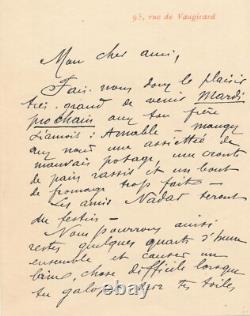 95, rue de Vaugirard
Mon cher ami,
Fais-nous donc le plaisir
très grand de venir Mardi
prochain avec ton frère
manger
avec nous une assiettée de
mauvais potage, une croûte
de pain rassis et un bout
de fromage trop fait —
Les amis Nadar seront
du festin —
Nous pourrons ainsi
rester quelques quarts d'heure
ensemble et causer un
chose difficile lorsque
tu galopes tes toiles,